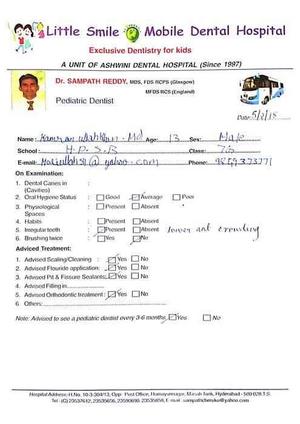 Little Smile Mobile Dental Hospital
Exclusive Dentistry for kids
A UNIT OF ASHWINI DENTAL HOSPITAL (Since 1997)
Dr. SAMPATH REDDY, MDS, FDS RCPS (Glasgow)
MFDS RCS (England)
Pediatric Dentist
Date: 5/2/15
Name: Md Age: 13 Sex: Male
School: H.P.S.B Class:
E-mail: @yahoo.com Phone:
On Examination:
1. Dental Caries in :
(Cavities)
2. Oral Hygiene Status : Good Average Poor
3. Physiological : Present Absent
Spaces
4. Habits : Present Absent
5. Irregular teeth : Present Absent lower ant crowding
6. Brushing twice : Yes No
Adviced Treatment:
1. Advised Scaling/Cleaning : Yes No
2. Advised Flouride application: Yes No
3. Advised Pit & Fissure Sealants: Yes No
4. Advised Filling in
5. Advised Orthodontic treatment : Yes No
6. Others:
Note: Advised to see a pediatric dentist every 3-6 months Yes No
Hospital Address: H.No. 10-3-304/13, Opp. Post Office, Humayunnagar, Masab Tank, Hyderabad - 500 028 T.S.
Tel: (O) 23537612, E.mail :